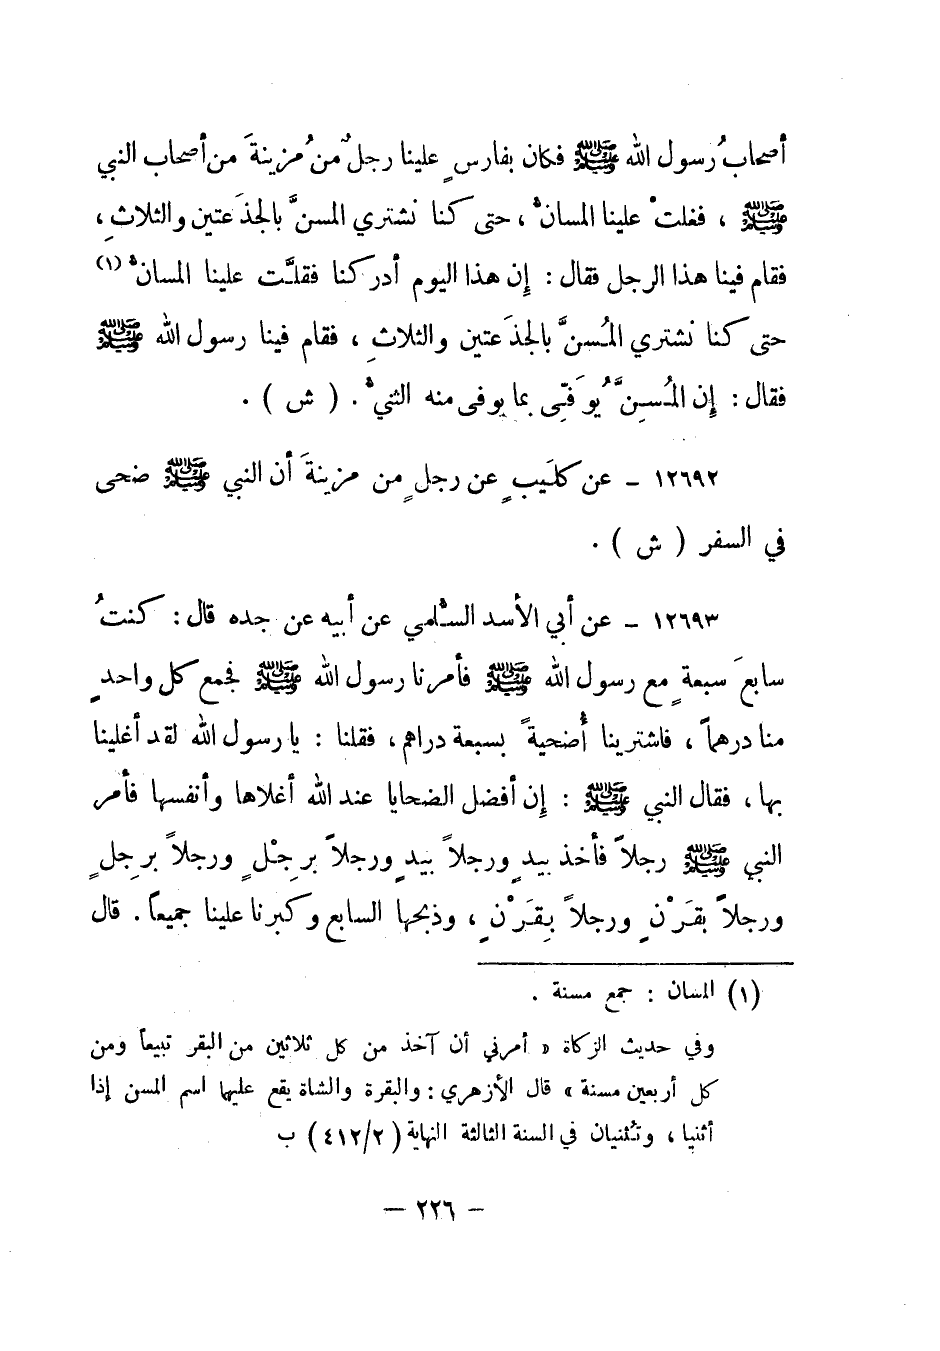 أصحابُ رسول الله ﷺ فكان بفارسٍ علينا رجلٌ من مُزينةَ من أصحاب النبي
ﷺ ، فغلتْ علينا المسانُّ ، حتى كنا نشتري المسنَّ بالجذَعتين والثلاثِ ،
فقام فينا هذا الرجل فقال : إن هذا اليوم أدركنا فقلَّت علينا المسانُّ (١)
حتى كنا نشتري المُسنَّ بالجذَعتين والثلاثِ ، فقام فينا رسول الله ﷺ
فقال : إن المُسِنَّ يُوَفِّى بما يوفى منه الثنيُّ . ( ش ) .
١٢٦٩٢ - عن كلَيبٍ عن رجلٍ من مزينةَ أن النبي ﷺ ضحى
في السفر ( ش ) .
١٢٦٩٣ - عن أبي الأسد السُّلمي عن أبيه عن جده قال : كنتُ
سابعَ سبعةٍ مع رسول الله ﷺ فأمرنا رسول الله ﷺ فجمع كل واحدٍ
منا درهماً ، فاشترينا أُضحيةً بسبعة دراهم ، فقلنا : يا رسول الله لقد أغلينا
بها ، فقال النبي ﷺ : إن أفضل الضحايا عند الله أغلاها وأنفسها فأمر
النبي ﷺ رجلاً فأخذ بيدٍ ورجلاً بيدٍ ورجلاً برِجْلٍ ورجلاً برِجلٍ
ورجلاً بقَرْنٍ ورجلاً بِقَرْنٍ ، وذبحها السابع وكبرنا علينا جميعاً . قال
(١) المسان : جمع مسنة .
وفي حديث الزكاة « أمرني أن آخذ من كل ثلاثين من البقر تبيعاً ومن
كل أربعين مسنة » قال الأزهري : والبقرة والشاة يقع عليها اسم المسن إذا
أثنيا ، وتُثنيان في السنة الثالثة النهاية ( ٤١٢/٢ ) ب
- ٢٢٦ -